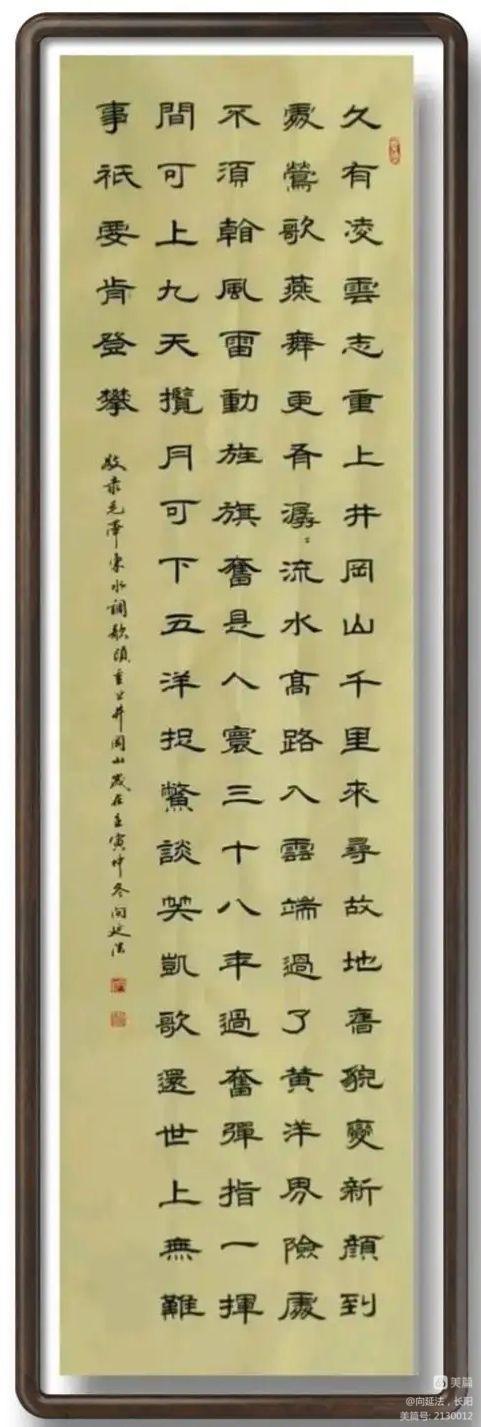 久有凌雲志重上井岡山千里來尋故地舊貌變新顏到
處鶯歌燕舞更有潺〻流水高路入雲端過了黃洋界險處
不須看風雷動旌旗奮是人寰三十八年過奮彈指一揮
間可上九天攬月可下五洋捉鱉談笑凱歌還世上無難
事祇要肯登攀
敬录毛澤東水調歌頭重上井岡山歲在壬寅仲冬向延法
美篇
@向延法，长阳
美篇号: 2130012